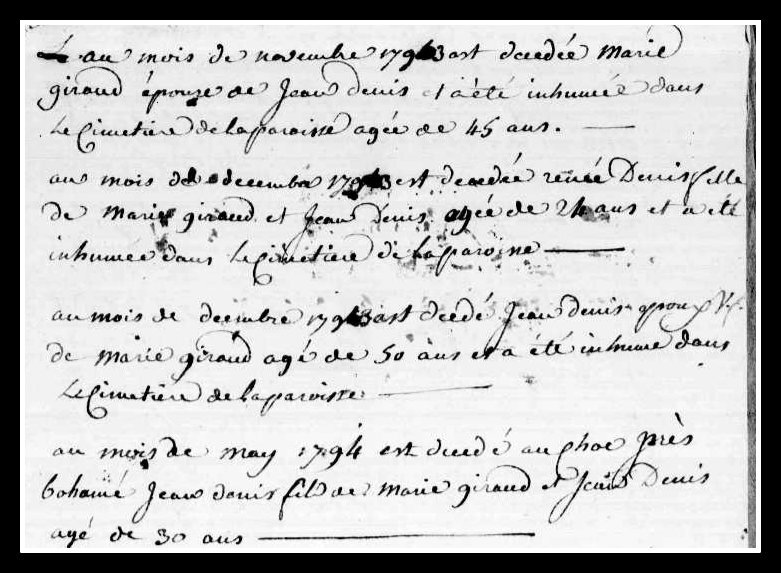 au mois de novembre 1793 est decedée Marie
giraud épouze de Jean denis et a été inhumée dans
Le Cimetiere de la paroisse agée de 45 ans.
au mois de decembre 1793 est decedée renée Denis fille
de Marie giraud et Jean Denis agée de 24 ans et a été
inhumée dans Le Cimetiere de la paroisse
au mois de decembre 1793 est decedé Jean denis epoux V.
de Marie giraud agé de 50 ans et a été inhumé dans
Le Cimetiere de la paroisse
au mois de may 1794 est decedé au près
bohamé Jean denis fils de Marie giraud et Jean Denis
agé de 30 ans